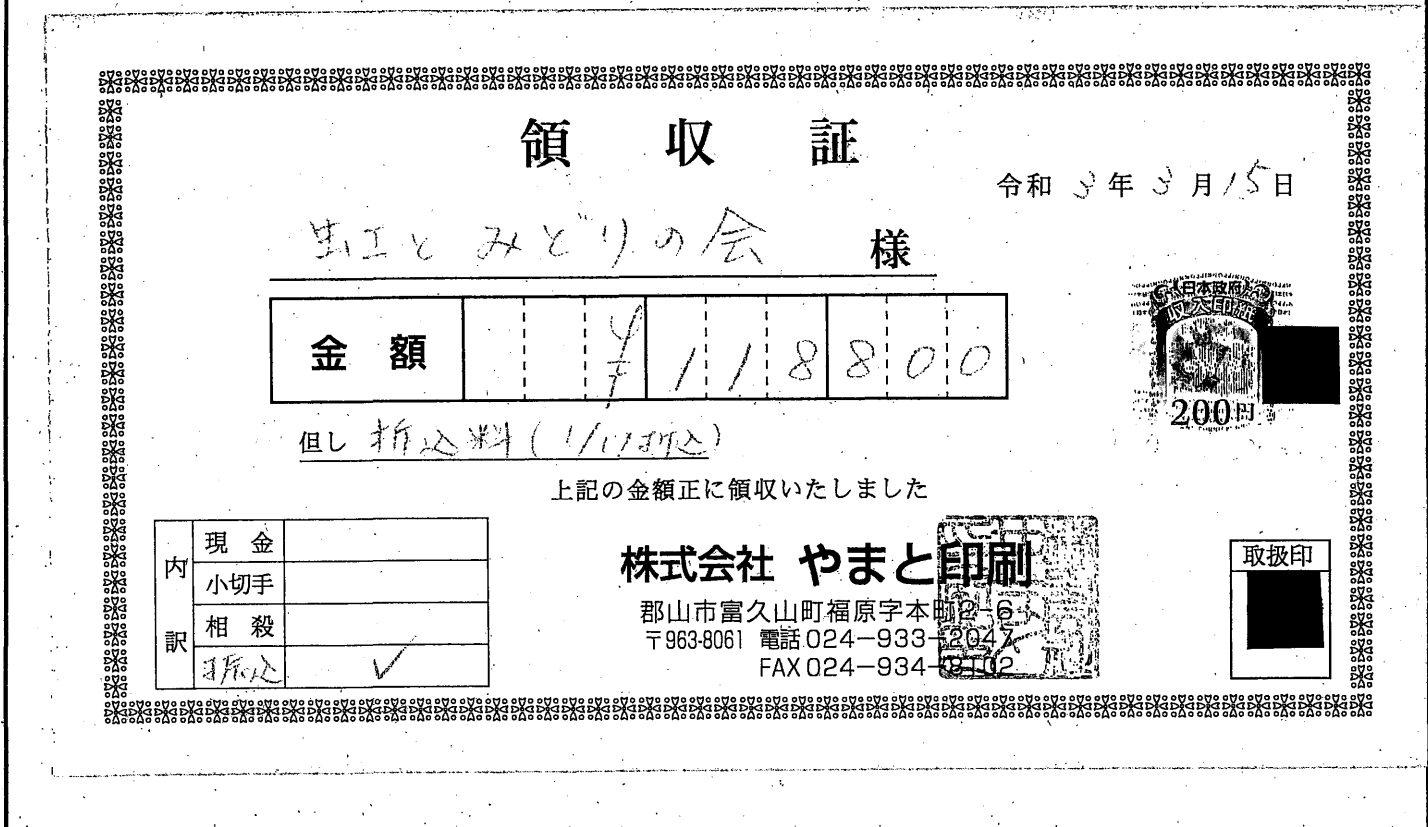 領収証
令和 3年 3月15日
虹とみどりの会 様
金額 ¥118800
但し 折込料(1/17折込)
上記の金額正に領収いたしました
日本政府
収入印紙
200円
内訳
現金
小切手
相殺
折込 ✓
株式会社 やまと印刷
郡山市富久山町福原字本町2-6
〒963-8061 電話024-933-2047
FAX 024-934-8102
取扱印